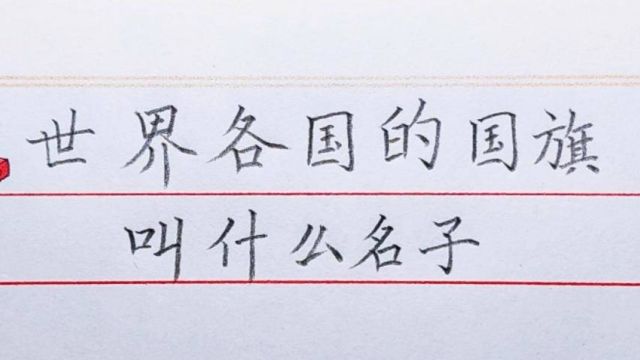 世界各国的国旗
叫什么名子